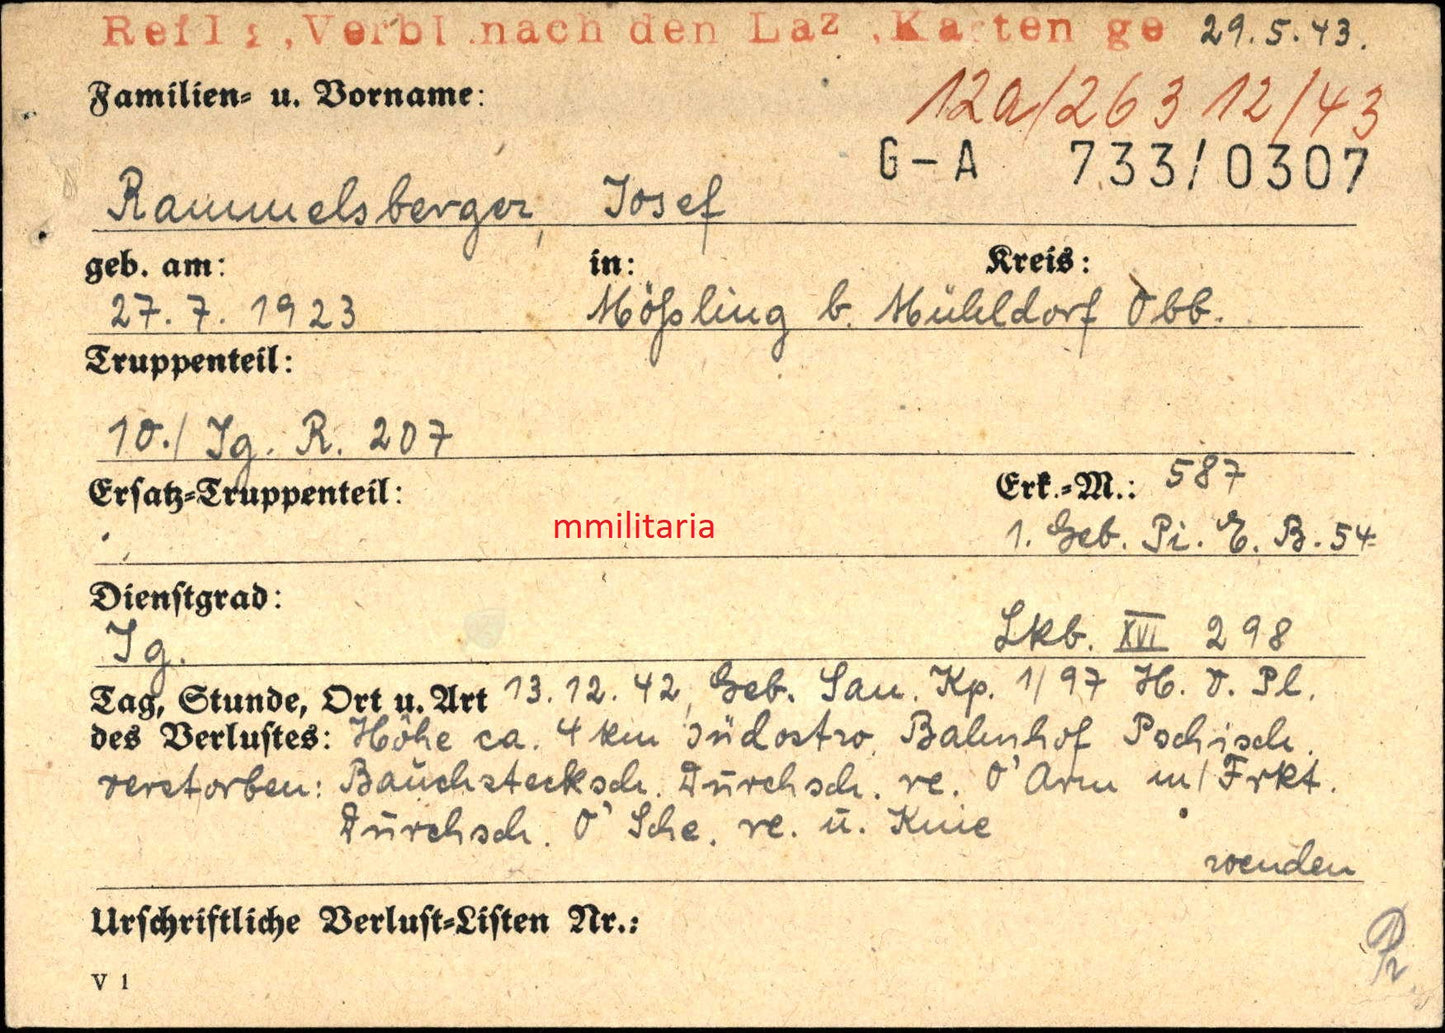 nach den Laz. Karten ge 29.5.43.
Familien= u. Vorname:
12a/263 12/43
G-A 733/0307
Rammelsberger, Josef
geb. am: in: Kreis:
27.7.1923 Mößling b. Mühldorf Obb.
Truppenteil:
10./ Jg. R. 207
Ersatz=Truppenteil: Erk.=M.: 587
mmilitaria
1. Geb. Pi. E. B. 54
Dienstgrad:
Jg. Lkb. XVI 298
Tag, Stunde, Ort u. Art 13.12.42, Geb. San. Kp. 1/97 H. V. Pl.
des Verlustes: Höhe ca. 4 km südostw. Bahnhof Pschisch.
verstorben: Bauchstecksch. Durchsch. re. O' Arm m/ Frkt.
Durchsch. O' Sche. re. u. Knie
wenden
Urschriftliche Verlust=Listen Nr.:
V 1